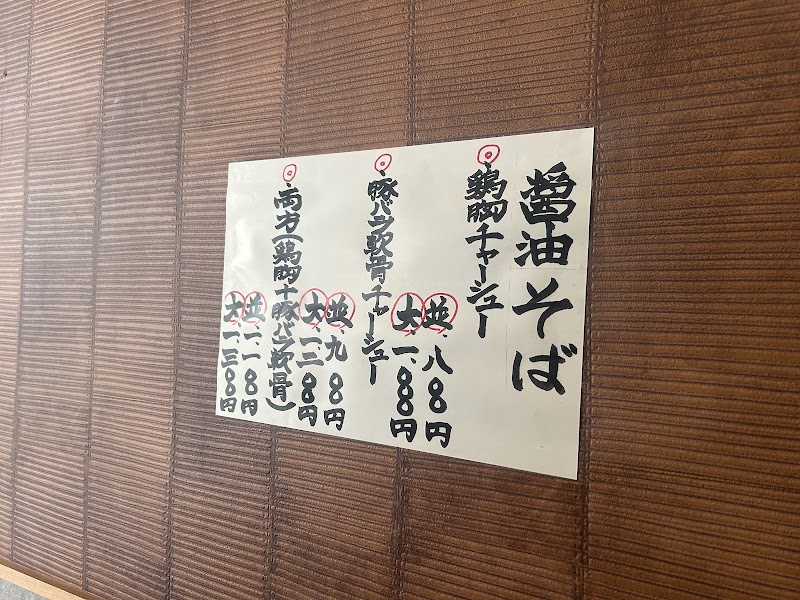 醤油そば
◎、鶏胸チャーシュー
並、八〇〇円
大、一、〇〇〇円
◎、豚バラ軟骨チャーシュー
並、九〇〇円
大、一、一〇〇円
◎、両方(鶏胸+豚バラ軟骨)
並、一、一〇〇円
大、一、三〇〇円